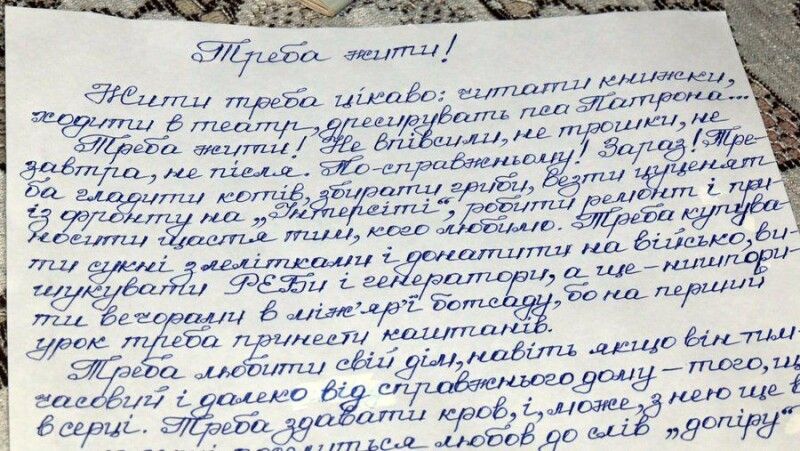 Треба жити!
Жити треба цікаво: читати книжки,
ходити в театр, дресирувать пса Патрона...
Треба жити! Не впівсили, не трошки, не
завтра, не після. По-справжньому! Зараз! Тре-
ба гладити котів, збирати гриби, везти цуценят
із фронту на „Інтерсіті“, робити ремонт і при-
носити щастя тим, кого любимо. Треба купува-
ти сукні з лелітками і донатити на військо, ви-
шукувати РЕБи і генератори, а ще – нишпори-
ти вечорами в міжяр'ї ботсаду, бо на перший
урок треба принести каштанів.
Треба любити свій дім, навіть якщо він тим-
часовий і далеко від справжнього дому – того, що
в серці. Треба здавати кров, і, може, з нею ще в
любов до слів „допіру“